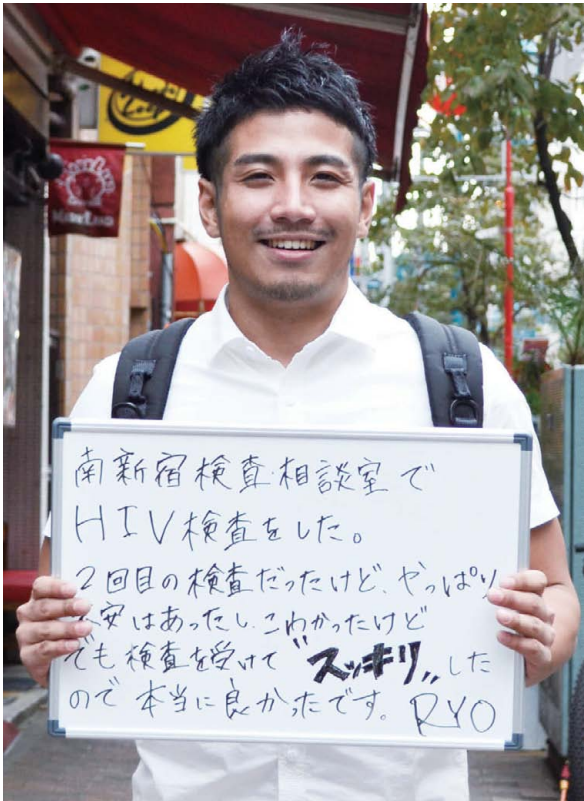 南新宿検査・相談室で
HIV検査をした。
2回目の検査だったけど、やっぱり
不安はあったし、こわかったけど
でも検査を受けて〝スッキリ〟した
ので本当に良かったです。RYO